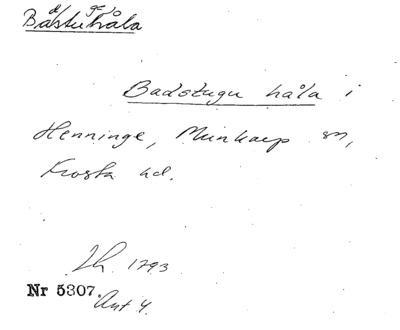 Bastuhåla
Badstugu håla i
Henninge, Munkarp sn,
Frosta hd.
Lh. 1793
Nr 5307.
Ant 4.